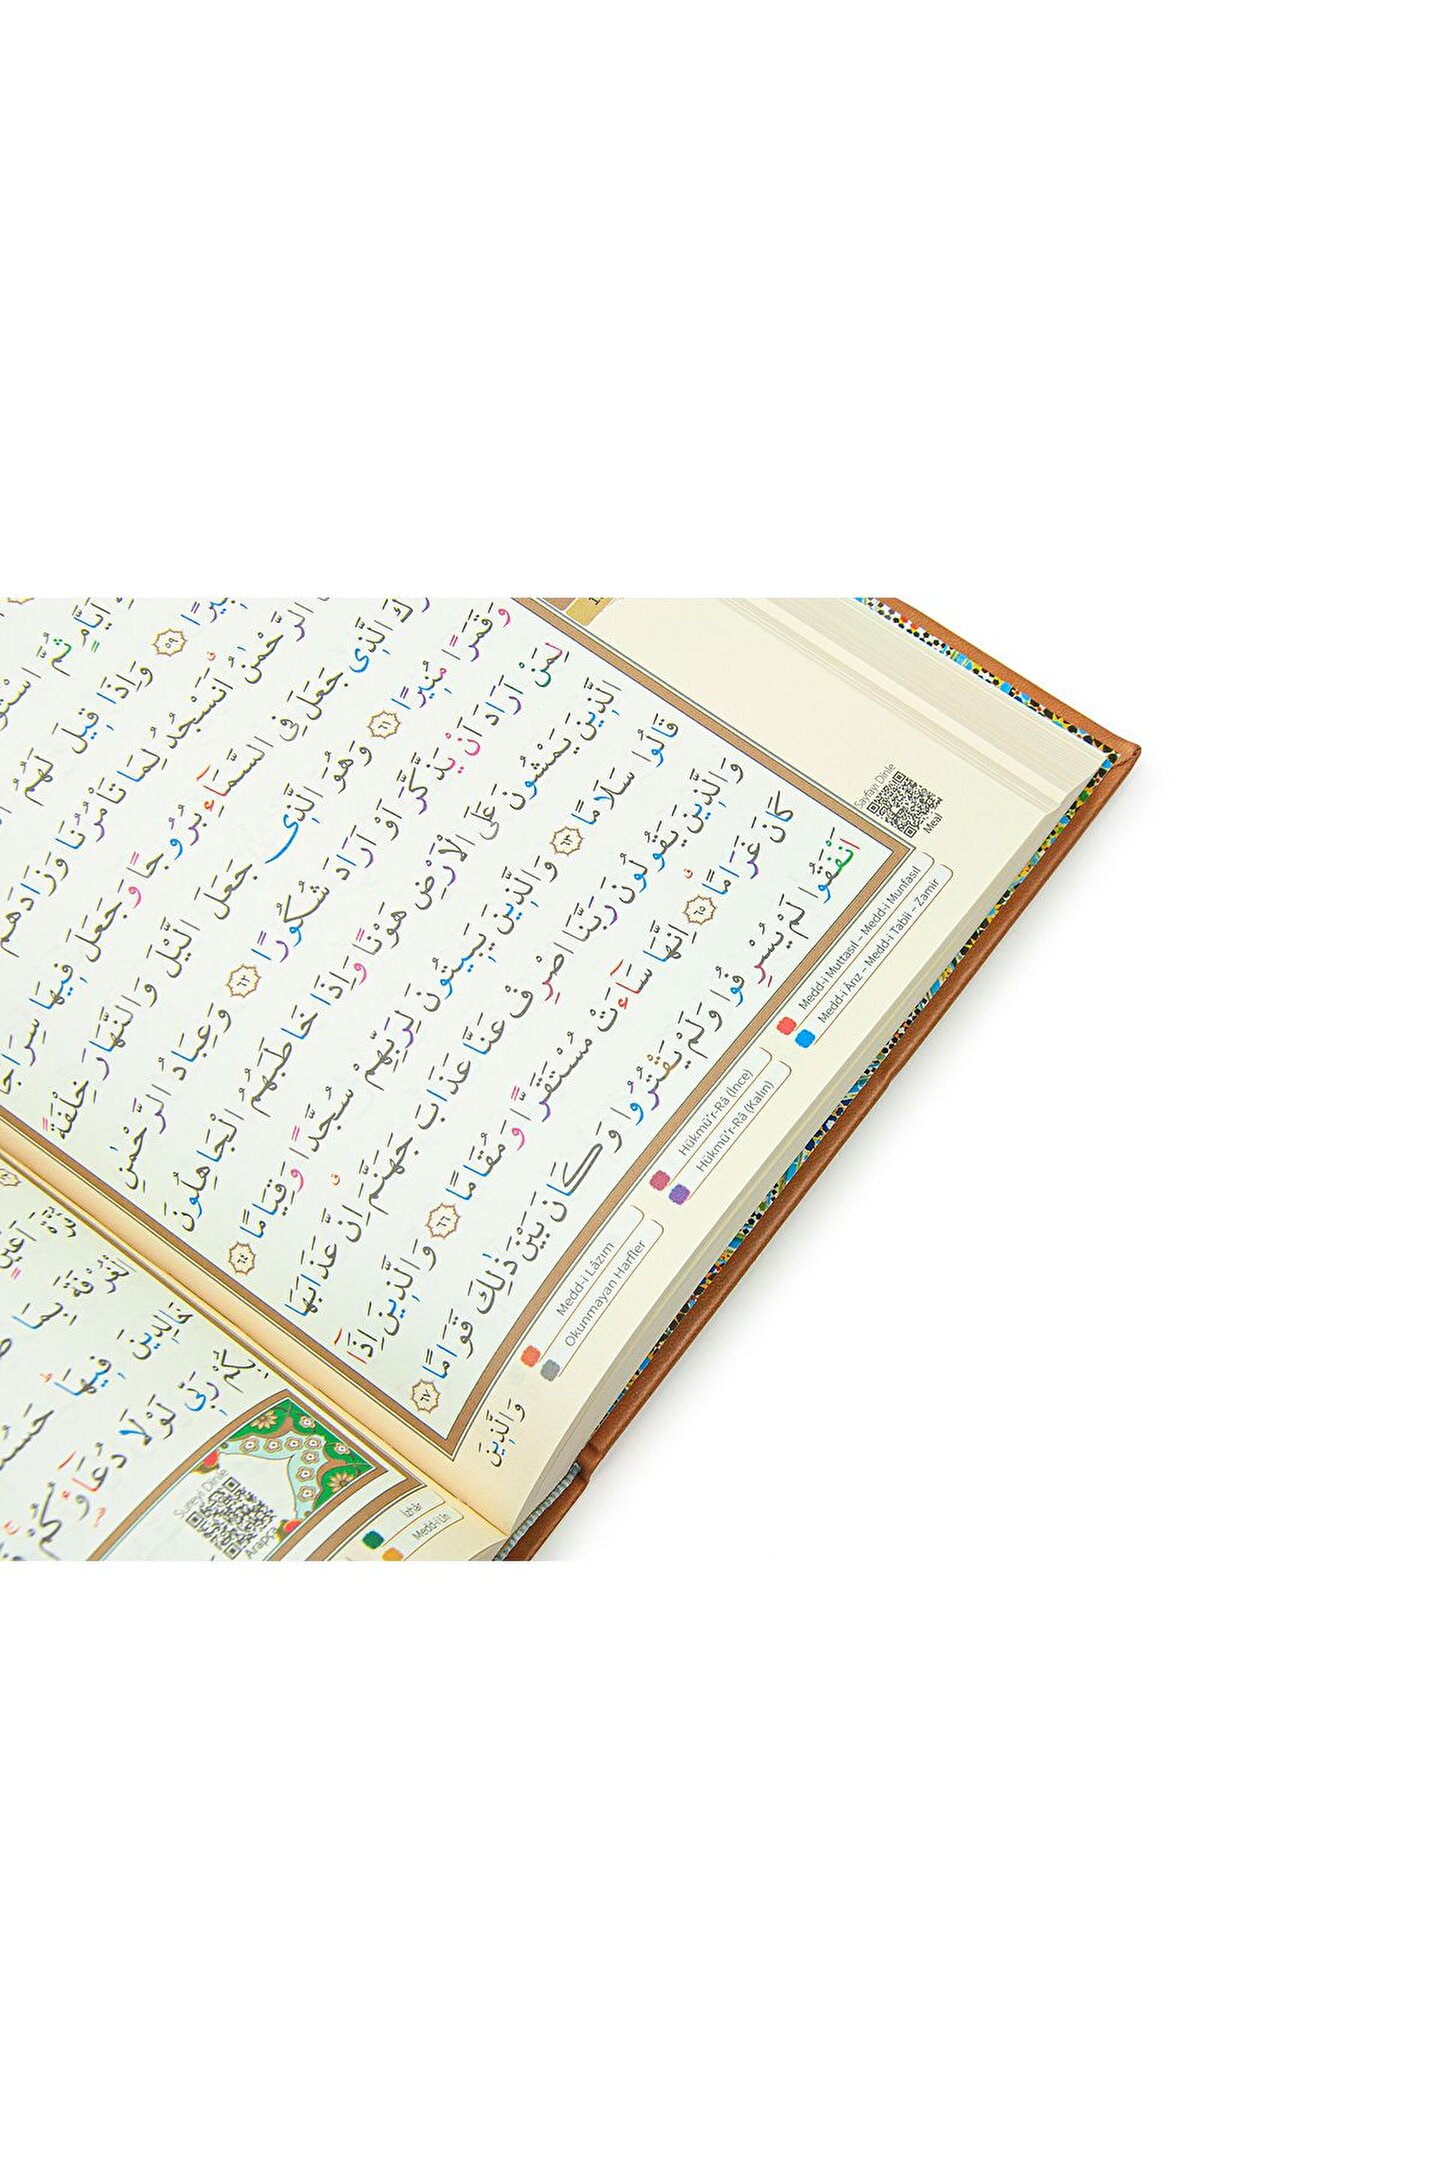 اَيَّامٍ ثُمَّ
﴿٥٩﴾ وَاِذَا قِيلَ لَهُمُ
الرَّحْمٰنُ اَنَسْجُدُ لِمَا تَأْمُرُنَا وَزَادَهُمْ
الَّذِى جَعَلَ فِى السَّمَٓاءِ بُرُوجًا وَجَعَلَ فِيهَا سِرَاجًا
وَقَمَرًا مُنِيرًا ﴿٦١﴾ وَهُوَ الَّذِى جَعَلَ الَّيْلَ وَالنَّهَارَ خِلْفَةً
لِمَنْ اَرَادَ اَنْ يَذَّكَّرَ اَوْ اَرَادَ شُكُورًا ﴿٦٢﴾ وَعِبَادُ الرَّحْمٰنِ
الَّذِينَ يَمْشُونَ عَلَى الْاَرْضِ هَوْنًا وَاِذَا خَاطَبَهُمُ الْجَاهِلُونَ
قَالُوا سَلَامًا ﴿٦٣﴾ وَالَّذِينَ يَبِيتُونَ لِرَبِّهِمْ سُجَّدًا وَقِيَامًا ﴿٦٤﴾
وَالَّذِينَ يَقُولُونَ رَبَّنَا اصْرِفْ عَنَّا عَذَابَ جَهَنَّمَ اِنَّ عَذَابَهَا
كَانَ غَرَامًا ﴿٦٥﴾ اِنَّهَا سَٓاءَتْ مُسْتَقَرًّا وَمُقَامًا ﴿٦٦﴾ وَالَّذِينَ اِذَٓا
اَنْفَقُوا لَمْ يُسْرِفُوا وَلَمْ يَقْتُرُوا وَكَانَ بَيْنَ ذٰلِكَ قَوَامًا ﴿٦٧﴾
وَالَّذِينَ
Sayfayı Dinle
Meal
Medd-i Muttasıl – Medd-i Munfasıl
Medd-i Ârız – Medd-i Tabii – Zamir
Hükmü'r-Râ (İnce)
Hükmü'r-Râ (Kalın)
Medd-i Lâzım
Okunmayan Harfler
خَالِدِينَ فِيهَا
رَبِّى لَوْلَا دُعَٓاؤُ۬كُمْ
Sureyi Dinle
Arapça
İzhâr
Medd-i Lîn